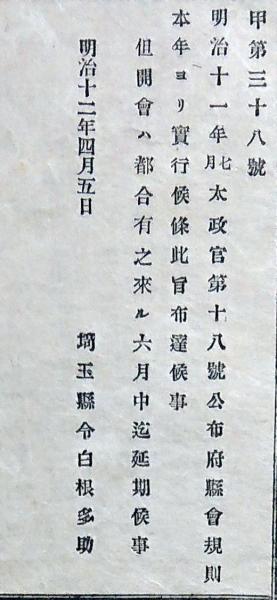 甲第三十八號
明治十一年七月太政官第十八號公布府縣會規則
本年ヨリ實行候條此旨布達候事
但開會ハ都合有之來ル六月中迄延期候事
明治十二年四月五日 埼玉縣令白根多助